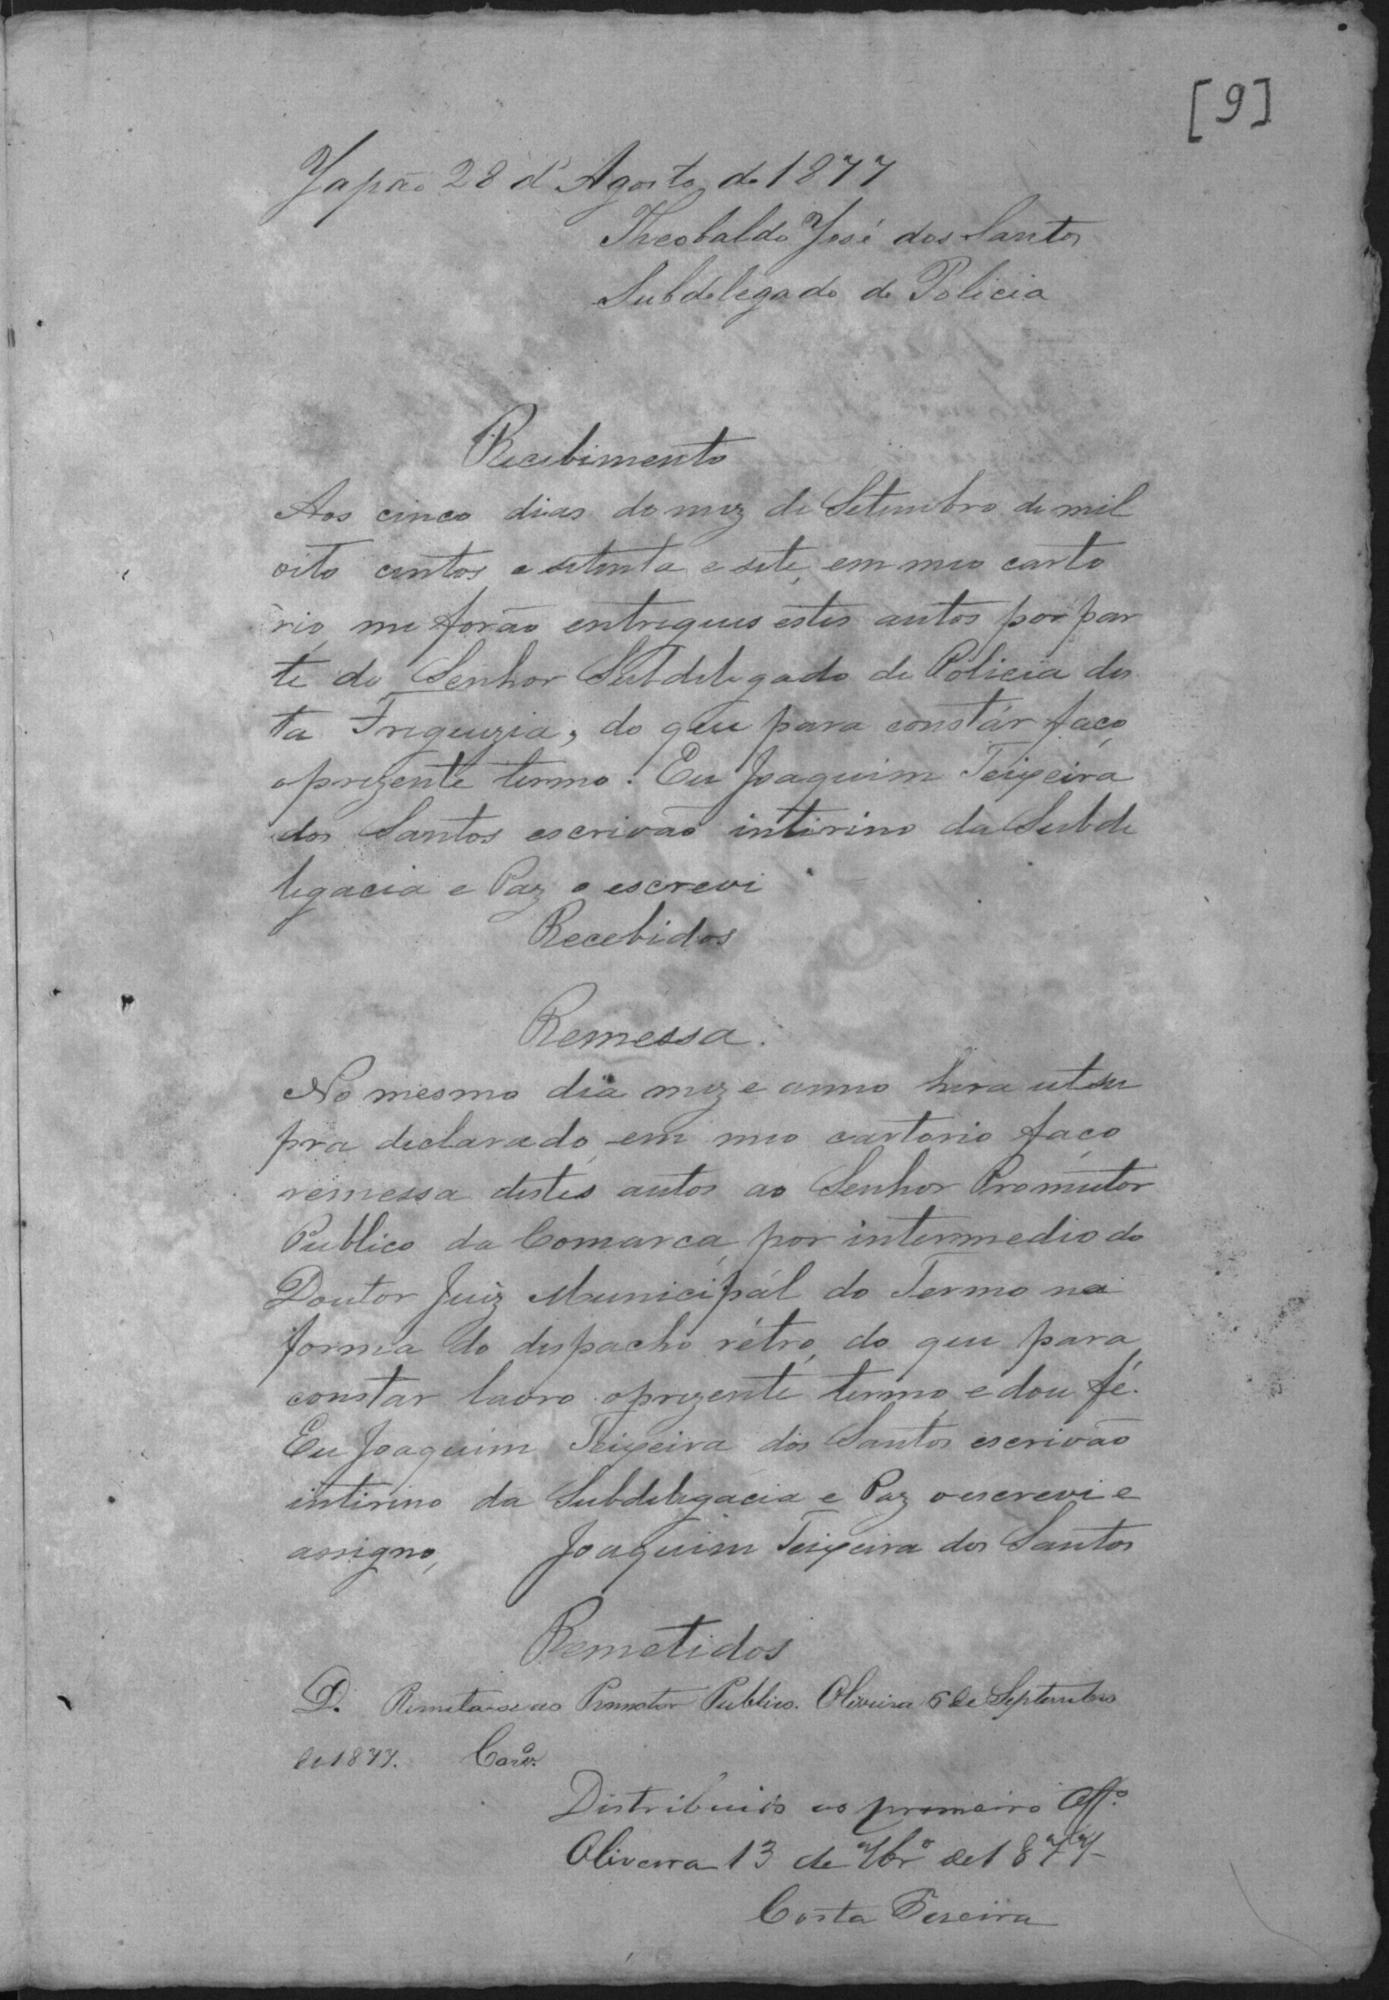 [9]
Japão 28 d'Agosto de 1877
Theobaldo José dos Santos
Subdelegado de Policia
Recebimento
Aos cinco dias do mez de Setembro de mil
oito centos e setenta e sete, em meo carto
rio, me forão entregues estes autos por par
te do Senhor Subdelegado de Policia des
ta Freguezia, do que para constár faço
o prezente termo. Eu Joaquim Teixeira
dos Santos escrivão intirino da Subde
legacia e Paz o escrevi
Recebidos
Remessa.
No mesmo dia mez e anno hera ut su
pra declarado, em meo cartorio faço
remessa destes autos ao Senhor Promutor
Publico da Comarca, por intermedio do
Doutor Juiz Municipál do Termo na
forma do despacho rétro, do que para
constar lavro o prezente termo, e dou fé.
Eu Joaquim Teixeira dos Santos escrivão
intirino da Subdelegacia e Paz o escrevi e
assigno, Joaquim Teixeira dos Santos
Remetidos
D. Remeta-se ao Promotor Publico. Oliveira 6 de Septembro
de 1877.
Distribuido ao primeiro Off.º
Oliveira 13 de 7br.º de 1877
Costa Pereira